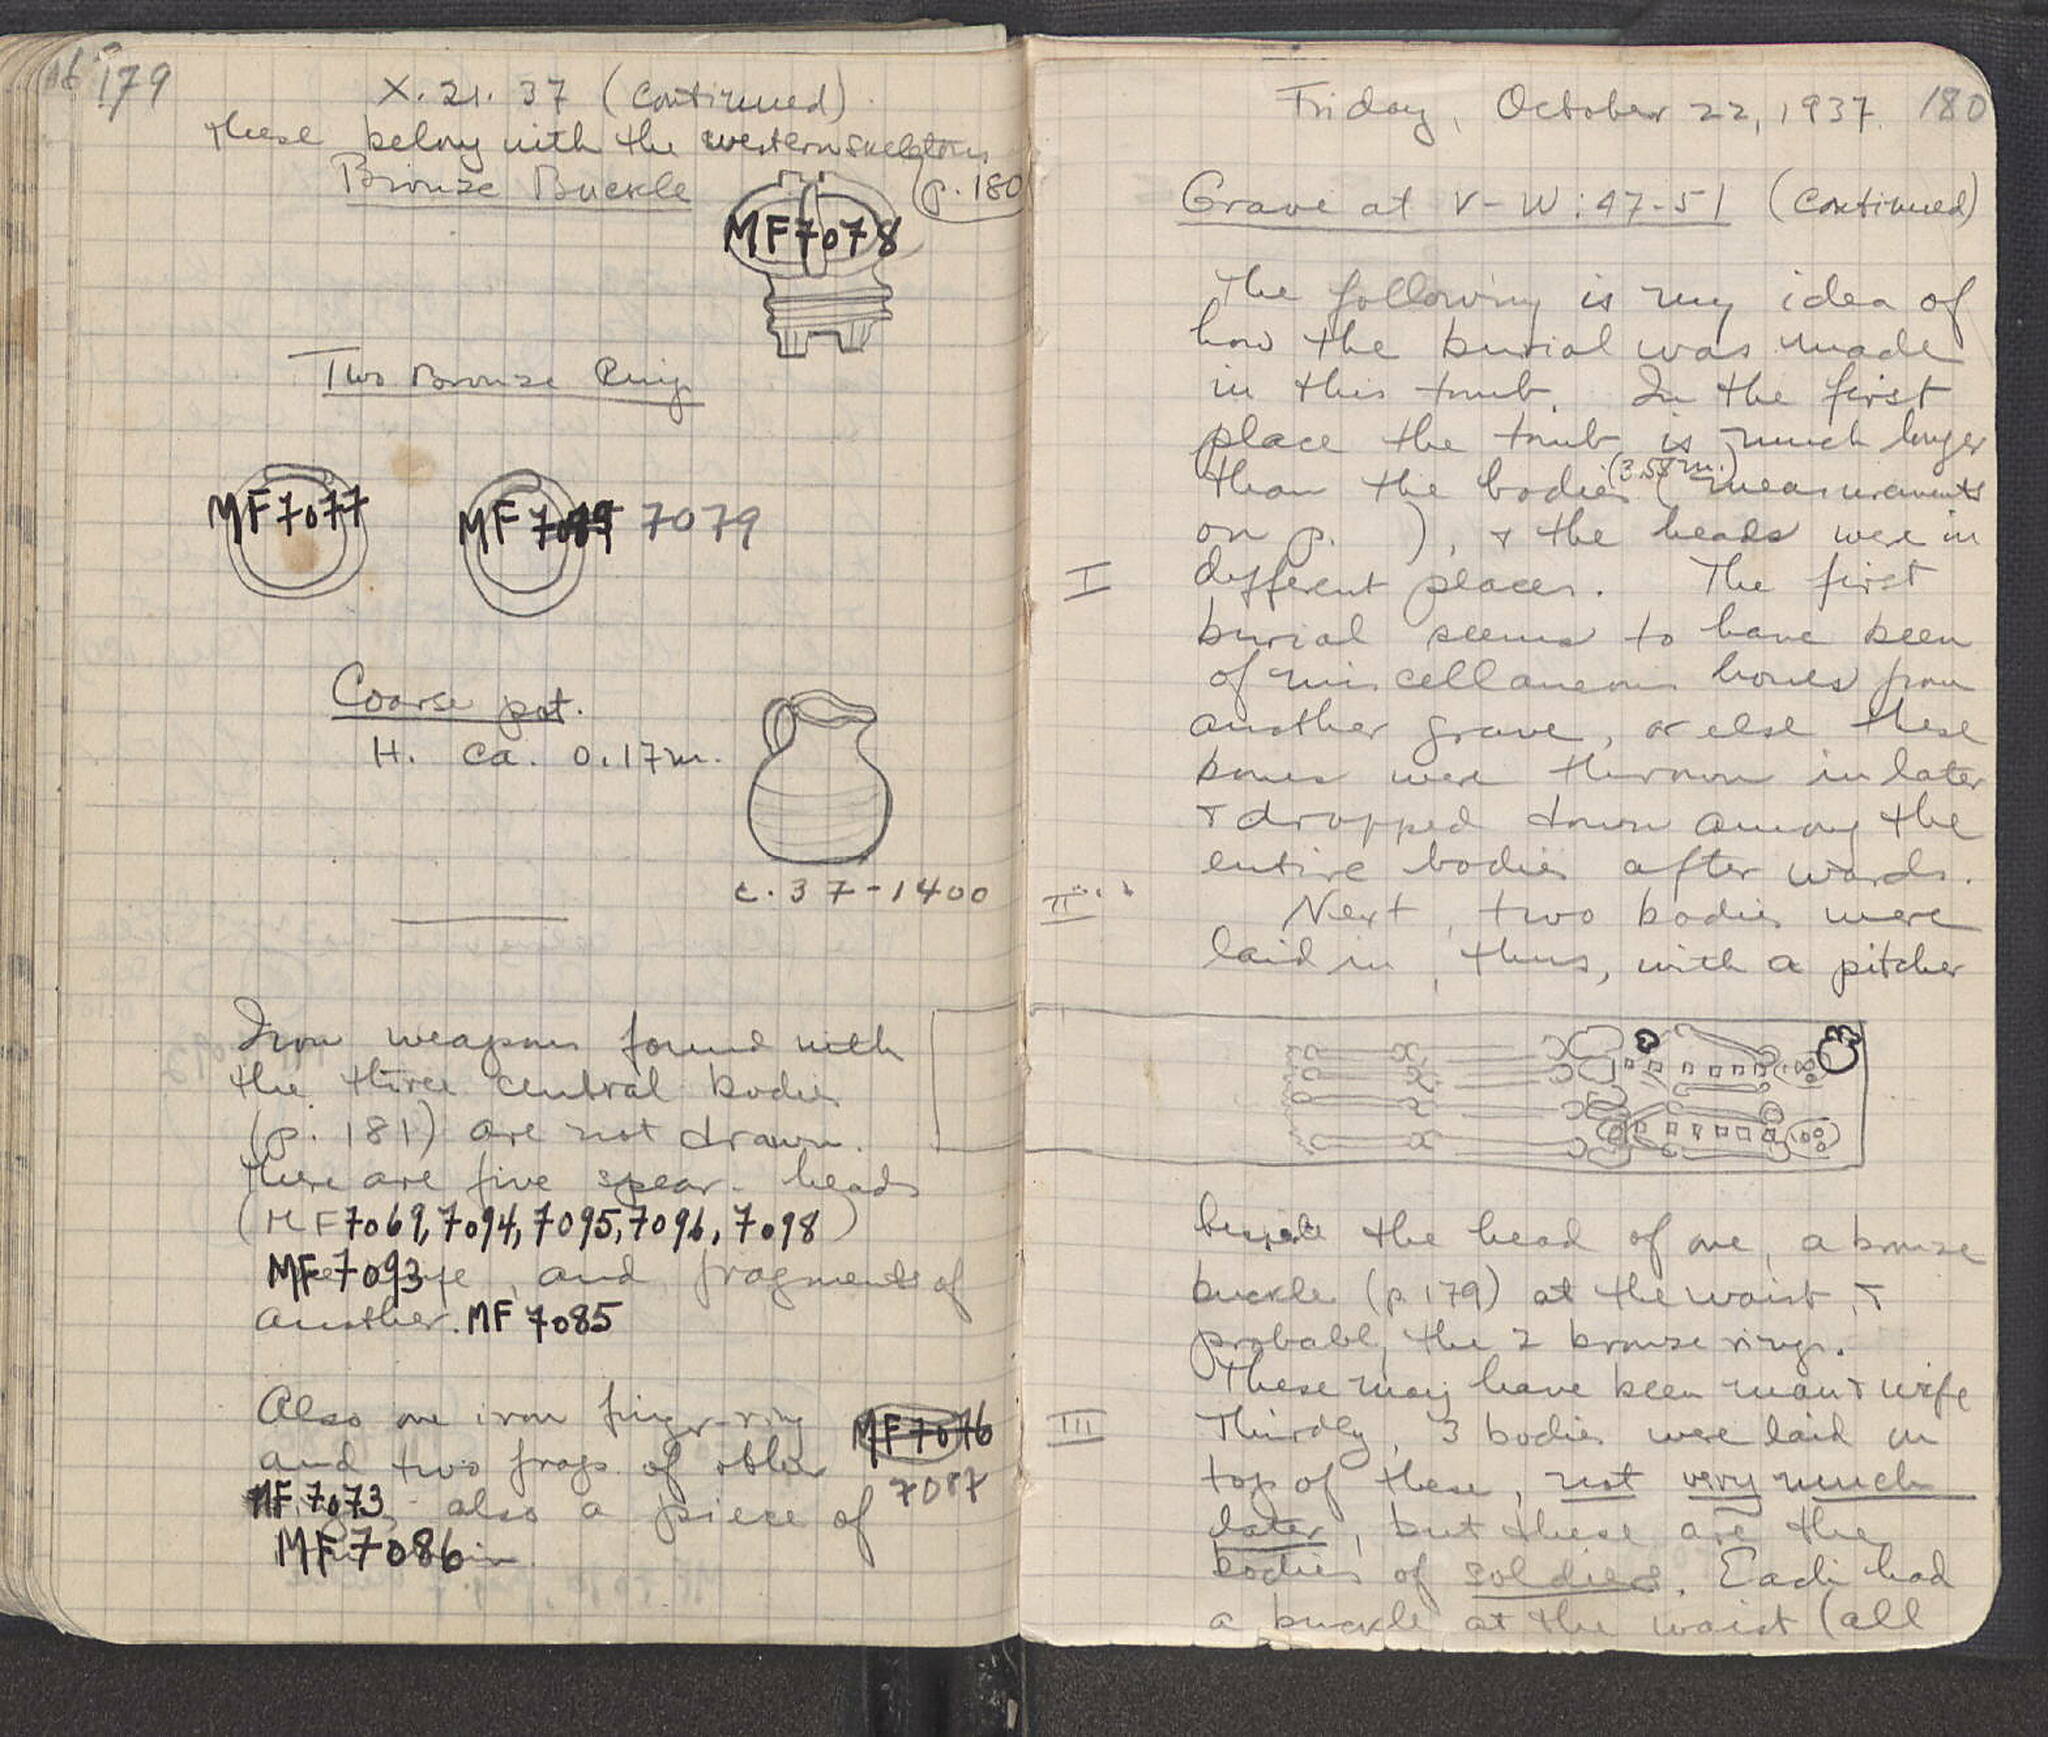 179
X. 21. 37 (continued)
These belong with the western skeletons
(p. 180
Bronze Buckle
MF7078
Two Bronze Rings
MF7077
MF 7079
Coarse pot.
H. ca. 0.17m.
c. 37-1400
Iron weapons found with
the three central bodies
(p. 181) are not drawn.
There are five spear-heads
(MF7069, 7094, 7095, 7096, 7098)
MF7093 , and fragments of
another. MF 7085
Also one iron finger-ring MF7076
and two frags. of other 7087
MF.7073 also a piece of
MF7086
Friday, October 22, 1937. 180
Grave at V-W:47-51 (continued)
The following is my idea of
how the burial was made
in this tomb. In the first
place the tomb is much longer
(3.58m.)
than the bodies (measurements
on p. ), & the heads were in
I different places. The first
burial seems to have been
of miscellaneous bones from
another grave, or else these
bones were thrown in later
& dropped down among the
entire bodies afterwards.
II Next, two bodies were
laid in, thus, with a pitcher
beside the head of one, a bronze
buckle (p. 179) at the waist, &
probabl, the 2 bronze rings.
These may have been man & wife
III Thirdly, 3 bodies were laid on
top of these, not very much
later, but these are the
bodies of soldiers. Each had
a buckle at the waist (all